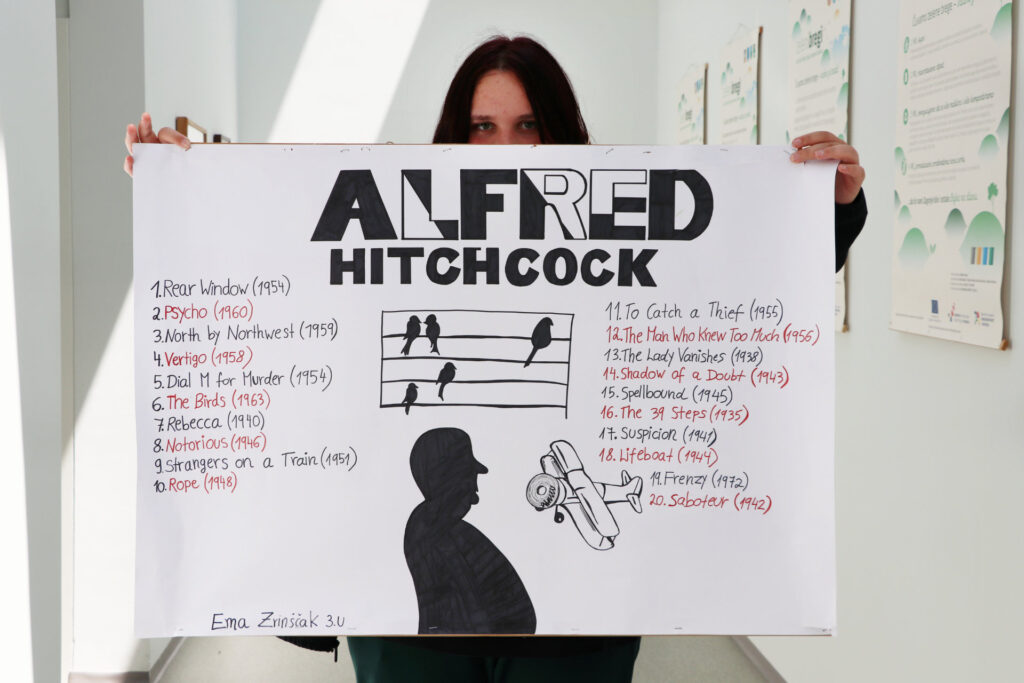 ALFRED
HITCHCOCK
1. Rear Window (1954)
2. Psycho (1960)
3. North by Northwest (1959)
4. Vertigo (1958)
5. Dial M for Murder (1954)
6. The Birds (1963)
7. Rebecca (1940)
8. Notorious (1946)
9. Strangers on a Train (1951)
10. Rope (1948)
11. To Catch a Thief (1955)
12. The Man Who Knew Too Much (1956)
13. The Lady Vanishes (1938)
14. Shadow of a Doubt (1943)
15. Spellbound (1945)
16. The 39 Steps (1935)
17. Suspicion (1941)
18. Lifeboat (1944)
19. Frenzy (1972)
20. Saboteur (1942)
Ema Zrinščak 3.u
bregi